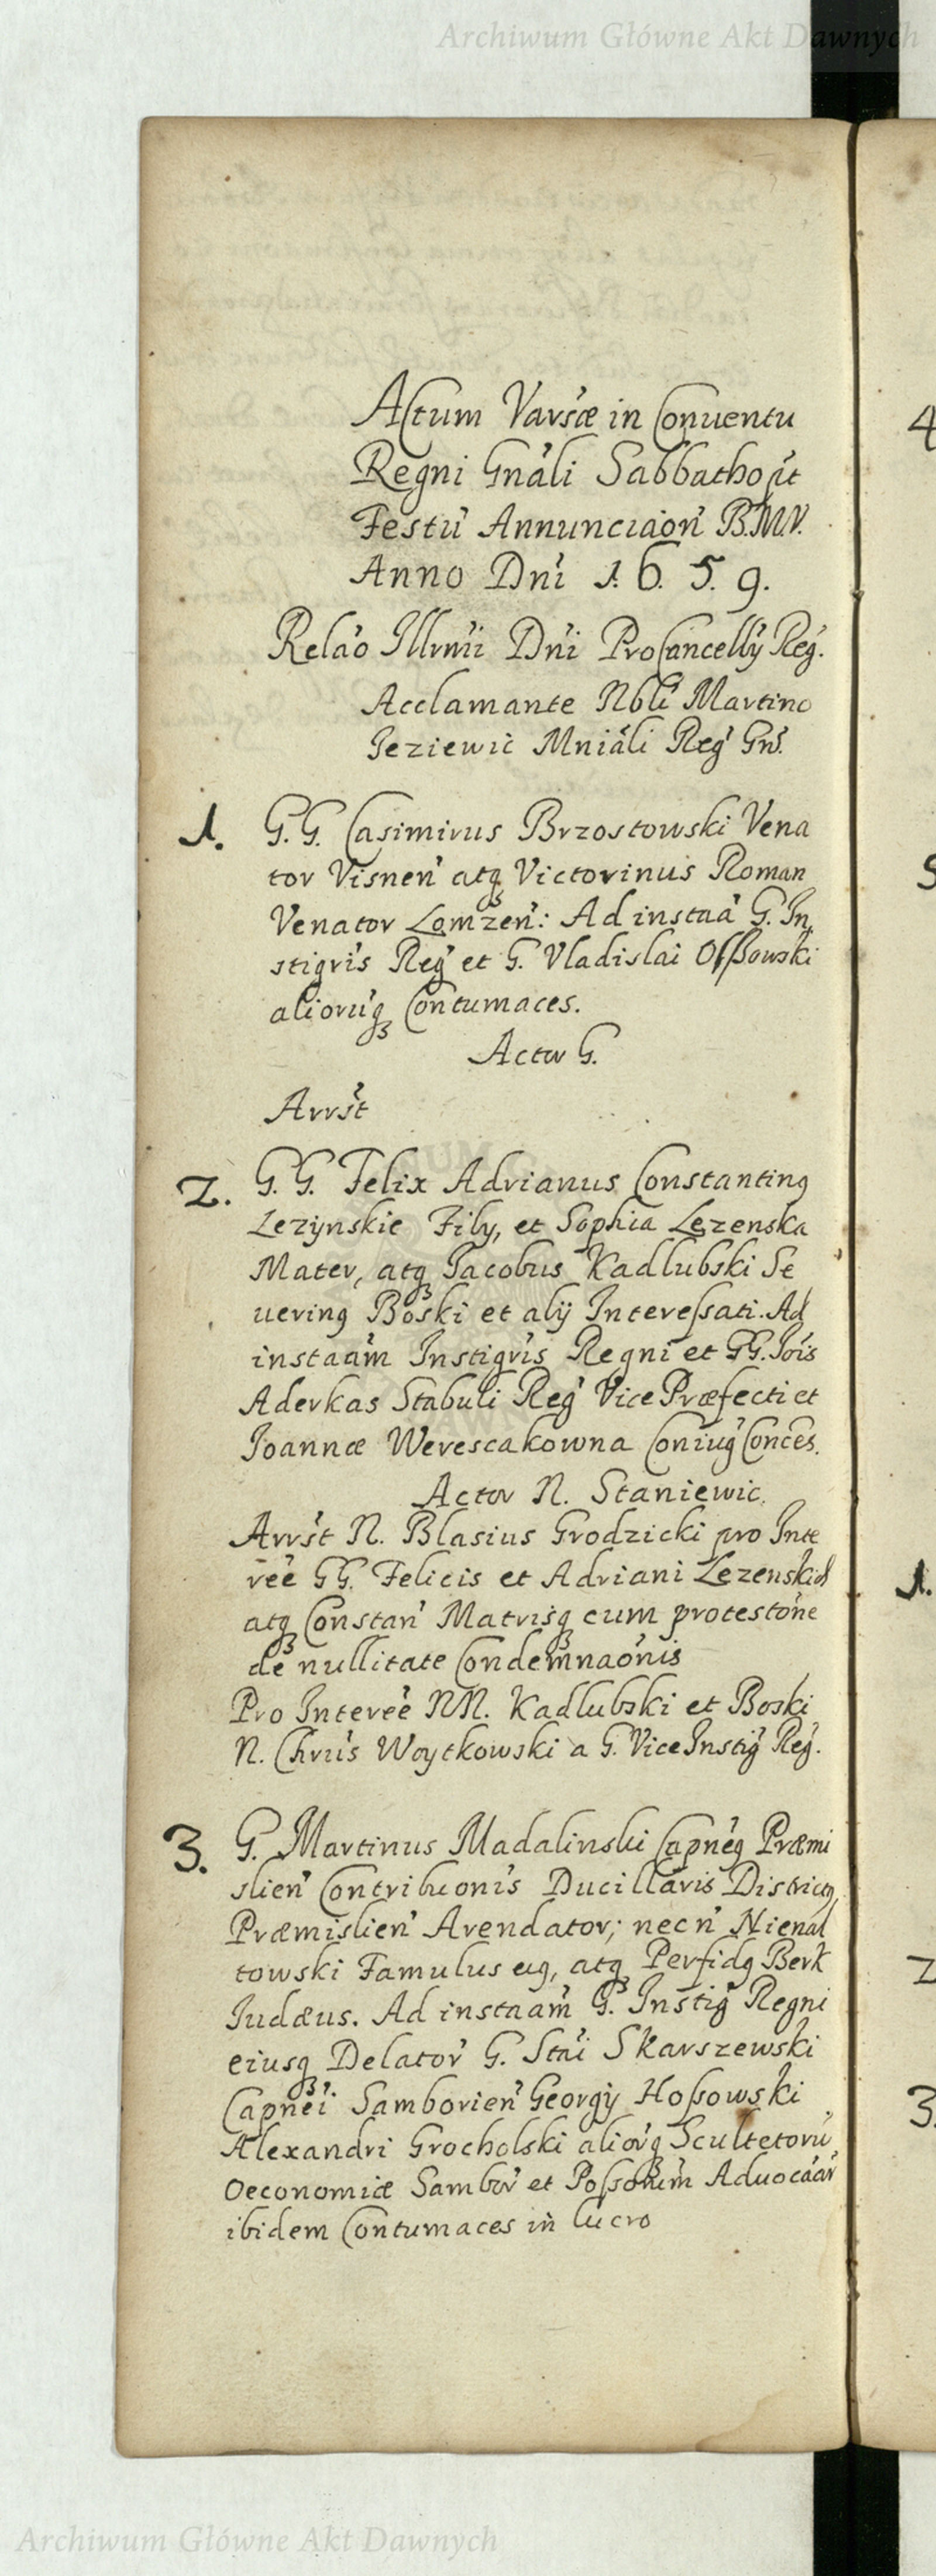 Archiwum Główne Akt Dawnych
Actum Varsæ in Conuentu
Regni Gnáli Sabbatho pt
Festu Annunciaon B.M.V.
Anno Dni 1. 6. 5. 9.
Relao Illrmi Dni ProCancelly Reg.
Acclamante Nbli Martino
Ieziewic Mniáli Reg Gnr.
1. G. G. Casimirus Brzostowski Vena
tor Visnen atqз Victorinus Roman
Venator Lomzen: Ad instaa G. In,
stigris Reg et G. Vladislai Ossowski
alioruqз Contumaces.
Actor G.
Arrst
2. G. G. Felix Adrianus Constantinq
Lezynskie Fily, et Sophia Lezenska
Mater, atqз Jacobus Kadlubski Se
uerinq Boski et alij Interessati. Ad
instaam Instigris Regni et GG. Jois
Aderkas Stabuli Reg Vice Præfecti et
Joannæ Werescakowna Coniug Conces.
Actor N. Staniewic.
Arrst N. Blasius Grodzicki pro Inte
ree GG. Felicis et Adriani Lezenskich
atqз Constan Matrisqз cum protestone
de nullitate Condemnaonis
Pro Interee NN. Kadlubski et Boski
N. Chrus Woytkowski a G. Vice Instig Reg.
3. G. Martinus Madalinski Capneq Præmi
slien Contribuonis Ducillaris Districtq
Præmislien Arendator; necn Nienal
towski Famulus eiq, atqз Perfidq Berk
Iudæus. Ad instaam G. Instig Regni
eiusqз Delator G. Stai Skarszewski
Capnei Samborien Georgij Hossowski
Alexandri Grocholski aliorqз Scultetoru
Oeconomiæ Sambor et Possorum Aduocaar
ibidem Contumaces in lucro
4
5
1.
2
3.
Archiwum Główne Akt Dawnych